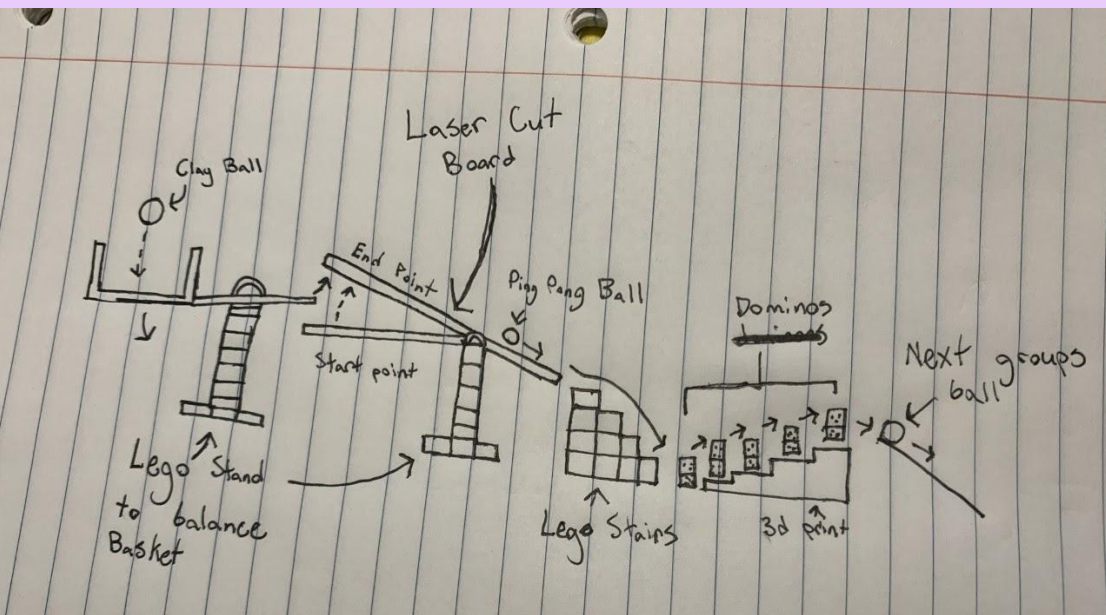 Clay Ball
Laser Cut
Board
End Point
Start point
Ping Pong Ball
Dominos
Next groups
ball
Lego Stand
to balance
Basket
Lego Stairs
3d print